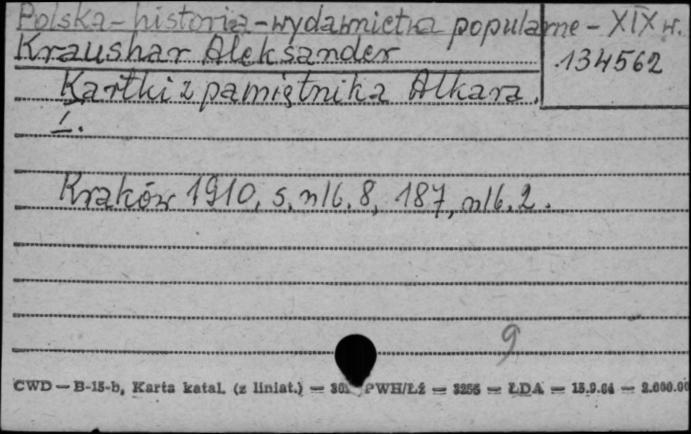 Polska - historia - wydawnictwa popularne - XIX w.
Kraushar Aleksander
134562
Kartki z pamiętnika Alkara.
I.
Kraków 1910, s. nlb. 8, 187, nlb. 2.
9
CWD — B-15-b, Karta katal. (z liniat.) — PWH/Łż — 3256 — ŁDA — 15.9.64 — 2.000.00